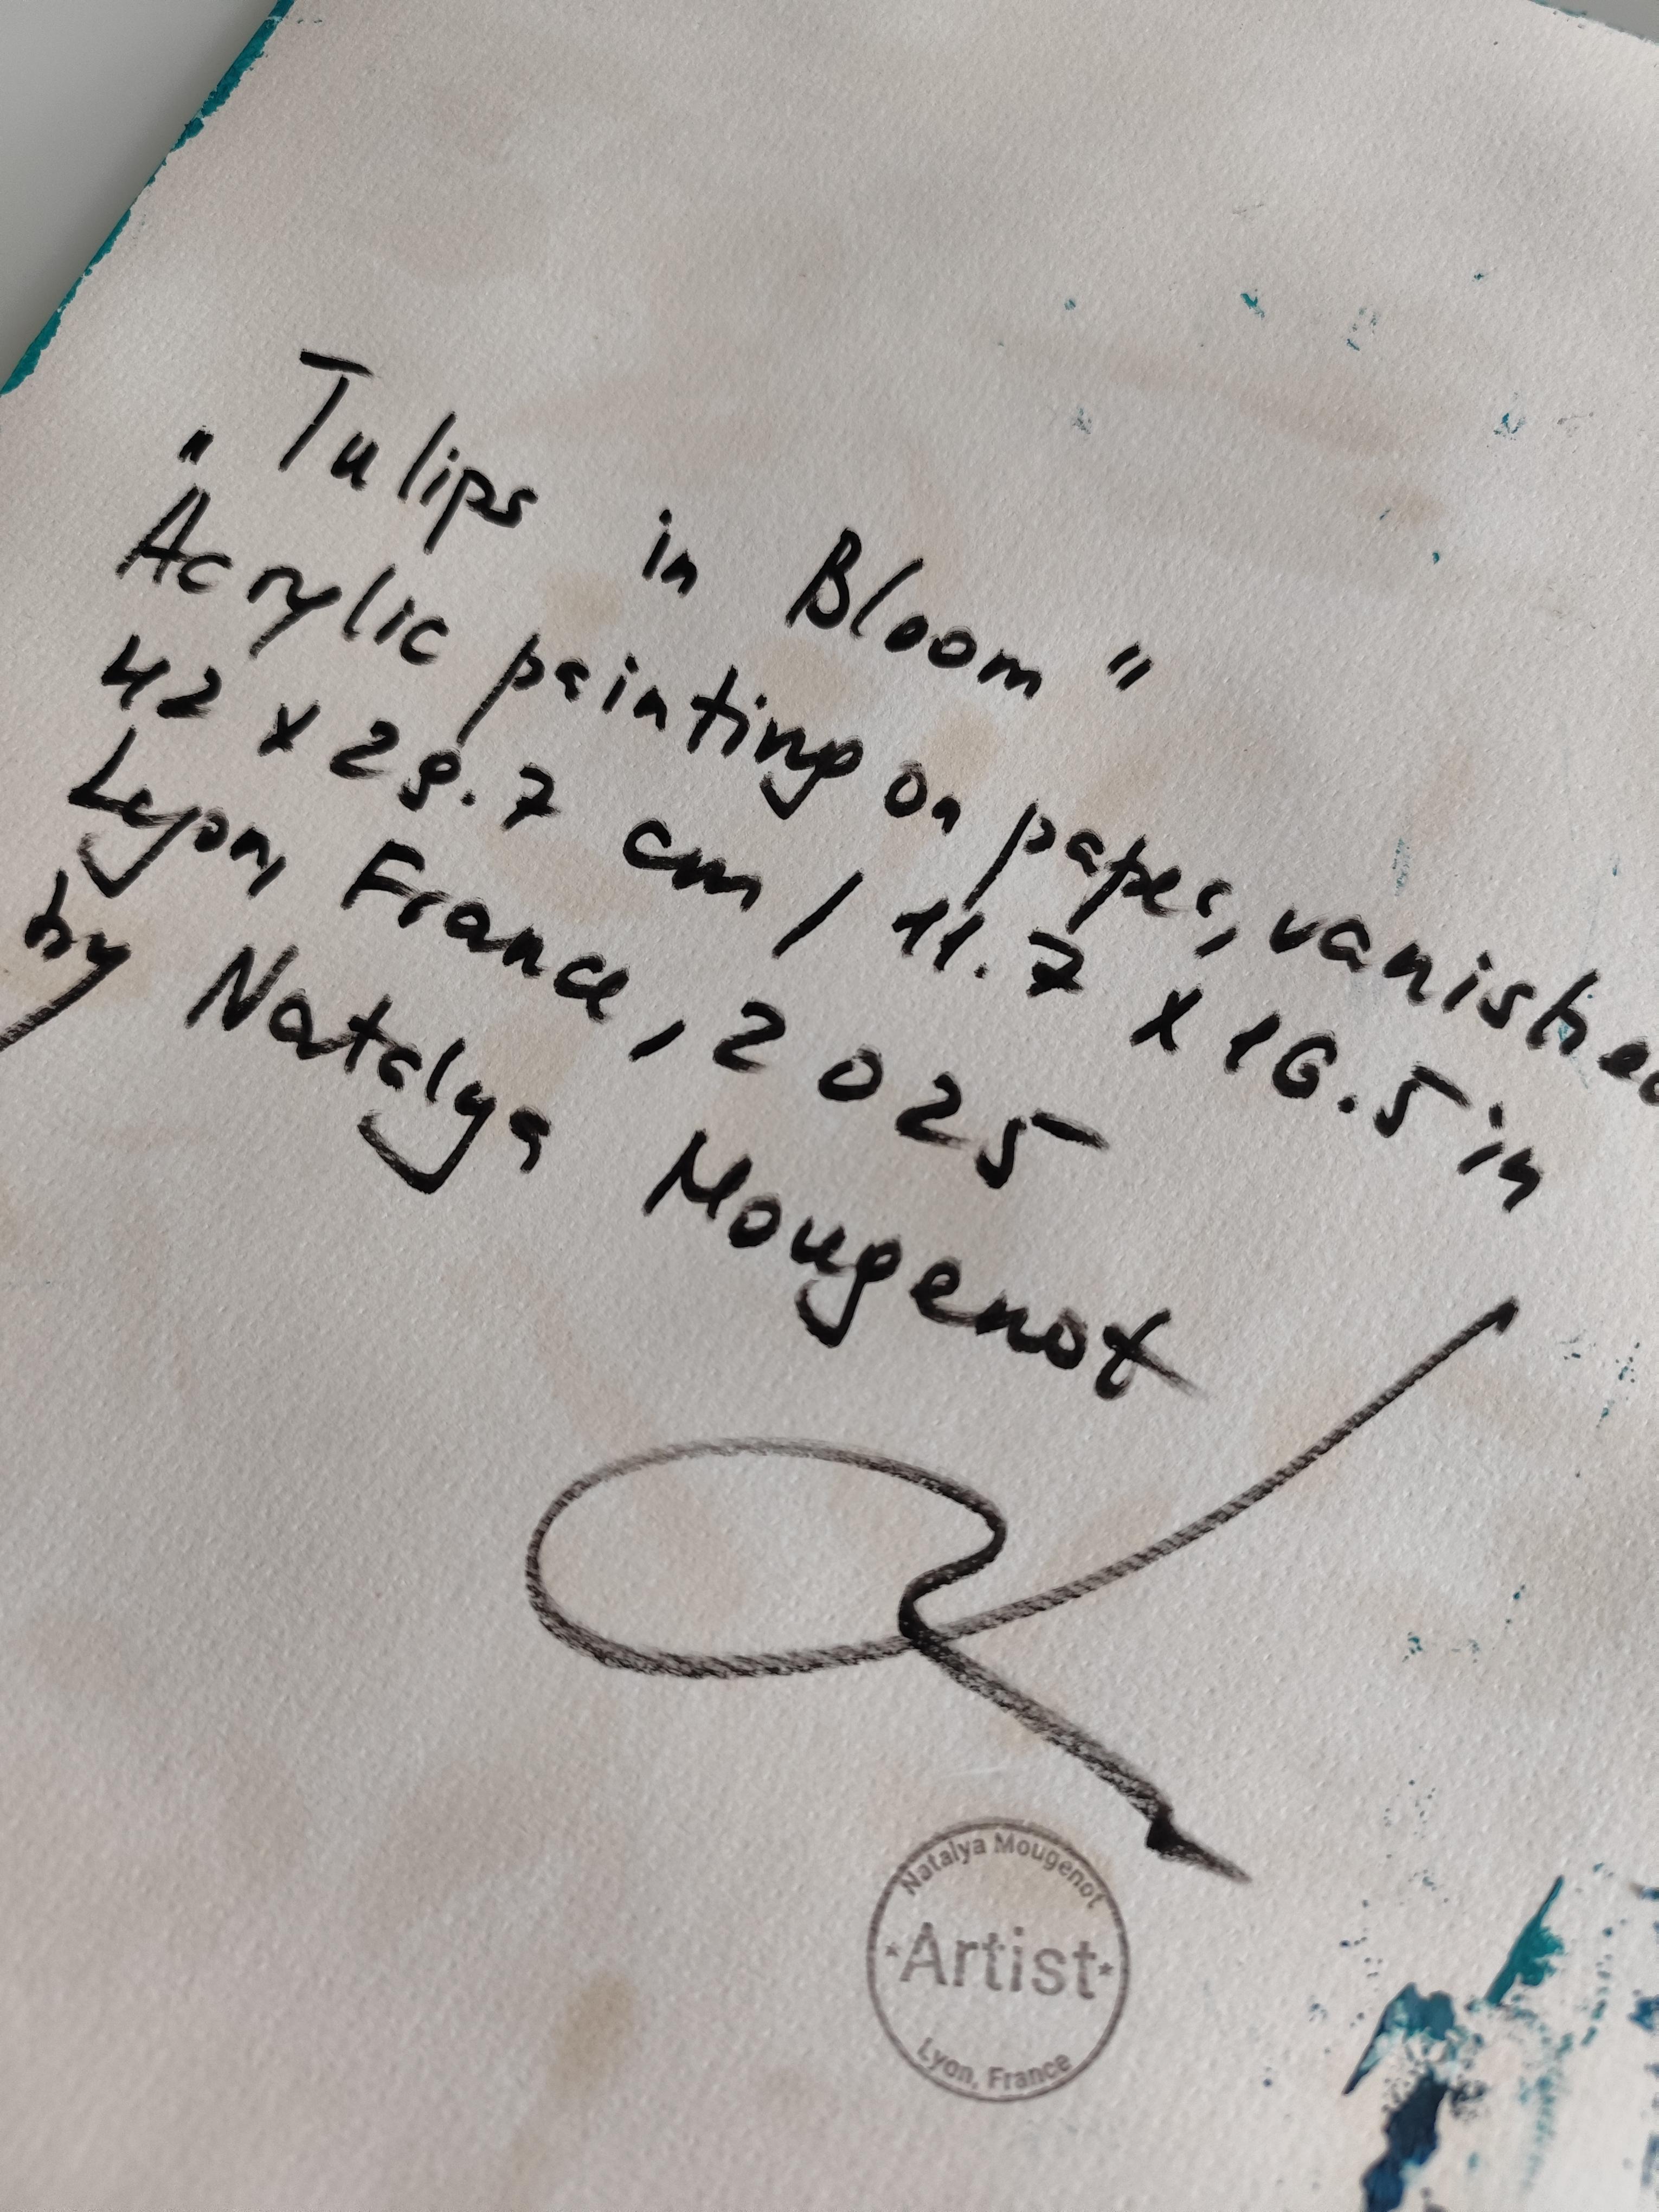 "Tulips in Bloom"
Acrylic painting on paper, vanished
42 x 29.7 cm / 11.7 x 16.5 in
Lyon, France, 2025
by Natalya Mougenot
Natalya Mougenot
*Artist*
Lyon, France